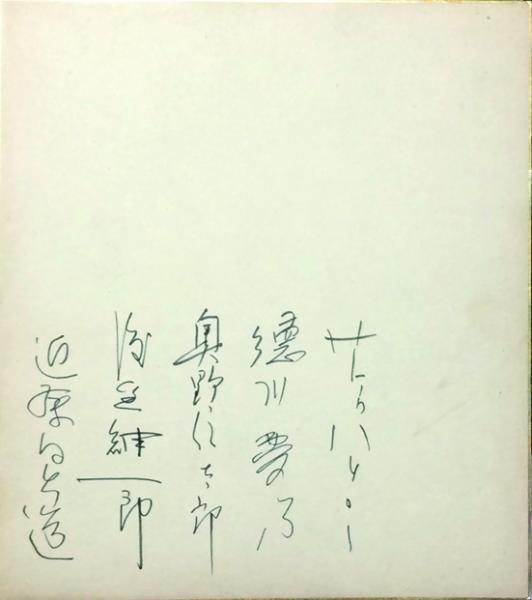 サトウハチロー
徳川夢声
奥野信太郎
渡辺紳一郎
近藤日出造